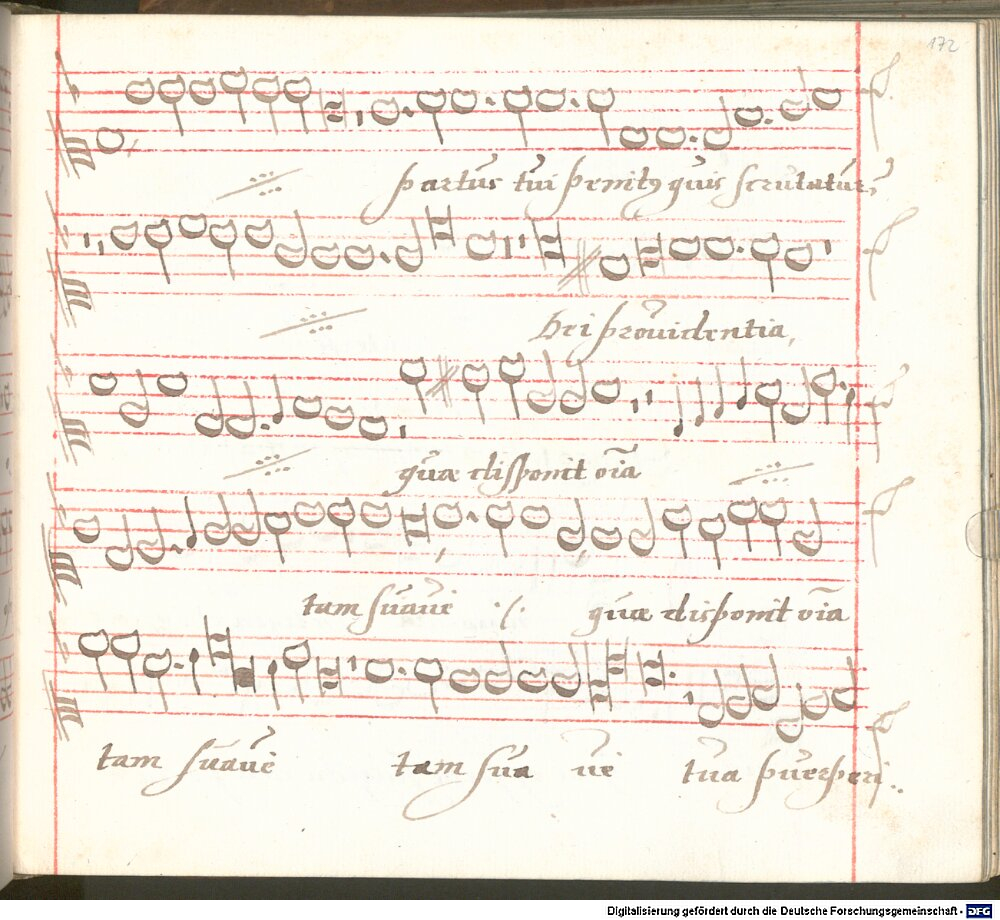 172
partus tui penitꝰ quis scrutatur,
Dei prouidentia,
quæ disponit oīa
tam suaue ./. quæ disponit oīa
tam suaue tam sua ue tua puerperi..
Digitalisierung gefördert durch die Deutsche Forschungsgemeinschaft - DFG